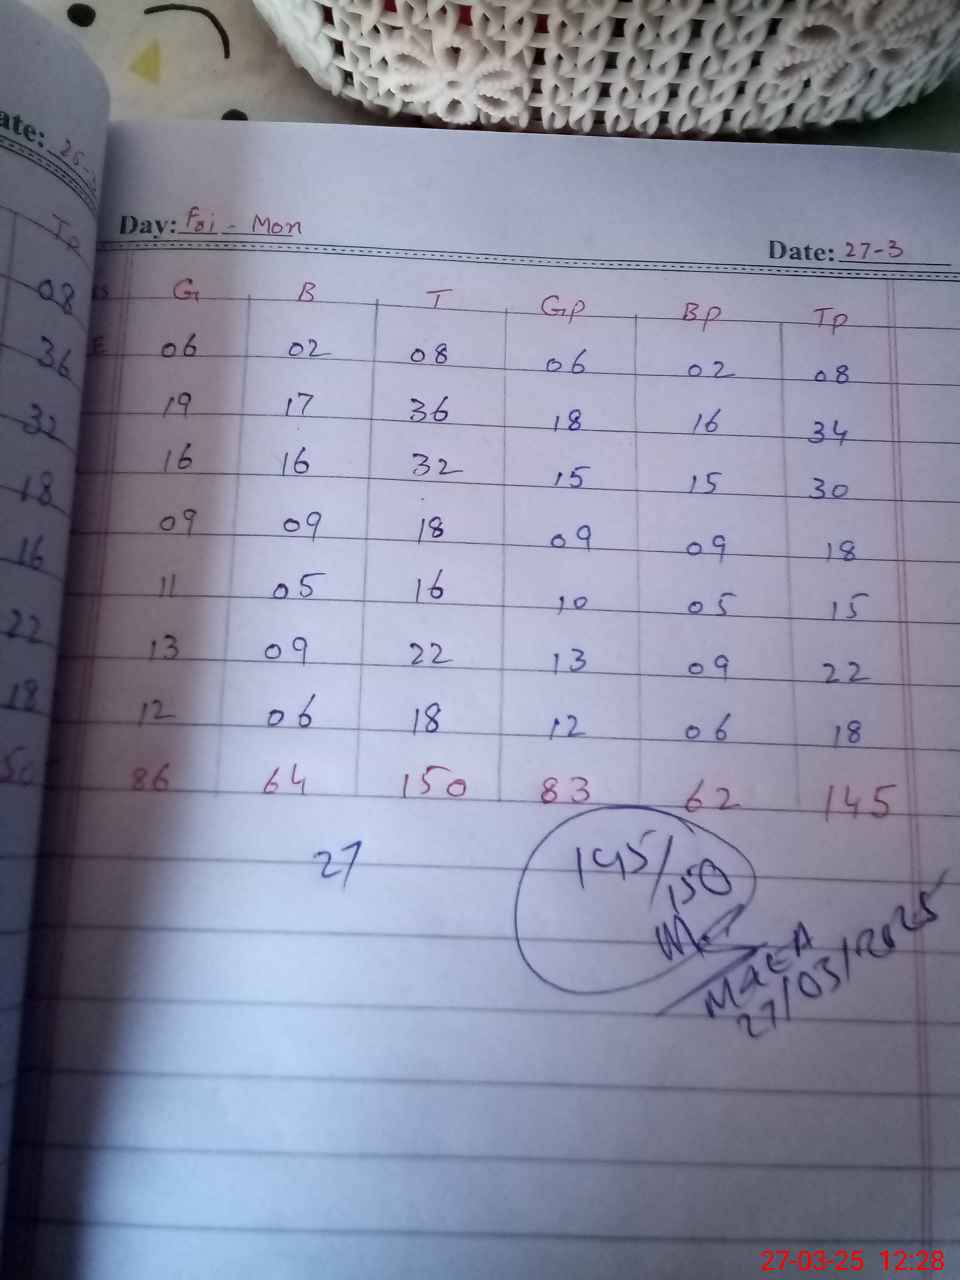 ate: 26-
Tp
08
36
32
18
16
22
18
50
Day: Fri - Mon
Date: 27-3
G B T Gp Bp Tp
E 06 02 08 06 02 08
19 17 36 18 16 34
16 16 32 15 15 30
09 09 18 09 09 18
11 05 16 10 05 15
13 09 22 13 09 22
12 06 18 12 06 18
86 64 150 83 62 145
27
145/150
27/03/2025
27-03-25 12:28